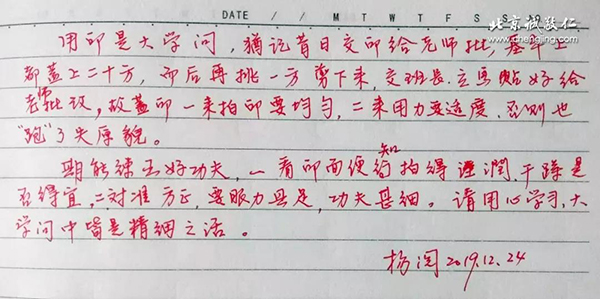 北京诚敬仁
www.chengjing.com
DATE / / M T W T F S S
用印是大学问，犹记昔日交印给老师批，基本上
都盖上二十方，而后再挑一方剪下来，交班长，立马贴好给
老师批改，故盖印一来拍印要均匀，二来用力要适度，否则也
"跑"了失原貌。
期能练至好功夫，一看印面便知拍得溼潤，干蹲是
否得宜，二对准方正，要眼力具足，功夫甚细。请用心学习，大
学问中皆是精细之活。
杨闰 2019.12.24